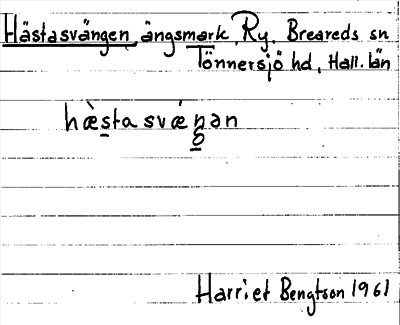 Hästasvängen, ängsmark, Ry, Breareds sn
Tönnersjö hd, Hall. län
hæ̀stasvǽn̥ən
Harriet Bengtson 1961